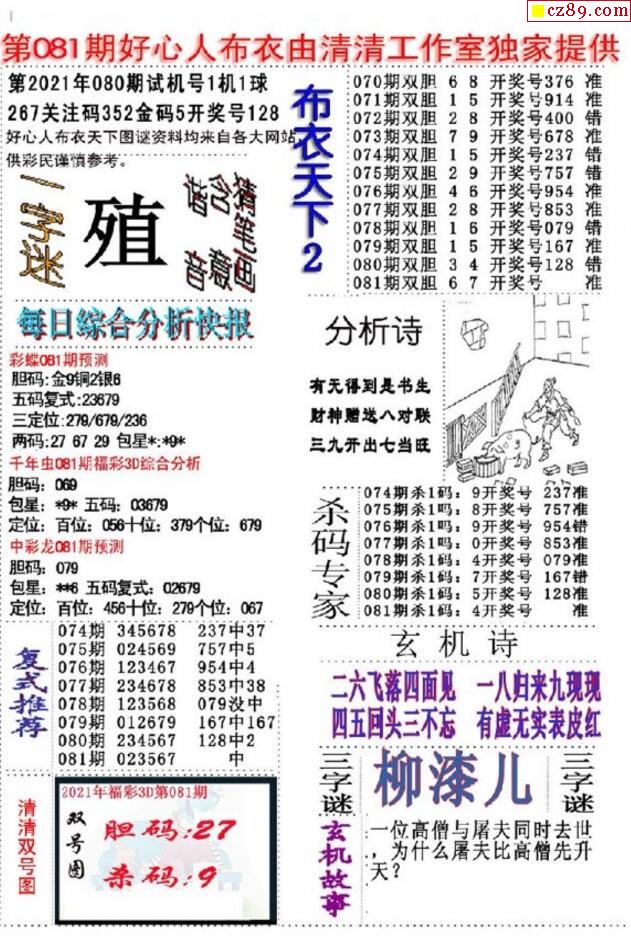 cz89.com
第081期好心人布衣由清清工作室独家提供
第2021年080期试机号1机1球
267关注码352金码5开奖号128
好心人布衣天下图谜资料均来自各大网站
供彩民谨慎参考。
一字谜
殖
猜笔画
含意
谐音
每日综合分析快报
彩蝶081期预测
胆码:金9铜2银6
五码复式:23679
三定位:279/679/236
两码:27 67 29 包星*:*9*
千年虫081期福彩3D综合分析
胆码: 069
包星: *9* 五码: 03679
定位: 百位: 056十位: 379个位: 679
中彩龙081期预测
胆码: 079
包星: **6 五码复式: 02679
定位: 百位: 456十位: 279个位: 067
复式推荐
074期 345678 237中37
075期 024569 757中5
076期 123467 954中4
077期 234678 853中38
078期 123568 079没中
079期 012679 167中167
080期 234567 128中2
081期 023567 中
清清双号图
2021年福彩3D第081期
双号图
胆码:27
杀码:9
布衣天下2
070期双胆 6 8 开奖号376 准
071期双胆 1 5 开奖号914 准
072期双胆 2 8 开奖号400 错
073期双胆 7 9 开奖号678 准
074期双胆 1 5 开奖号237 错
075期双胆 2 9 开奖号757 错
076期双胆 4 6 开奖号954 准
077期双胆 2 8 开奖号853 准
078期双胆 1 6 开奖号079 错
079期双胆 1 5 开奖号167 准
080期双胆 3 4 开奖号128 错
081期双胆 6 7 开奖号 准
分析诗
有无得到是书生
财神赠送八对联
三九开出七当旺
杀码专家
074期杀1码: 9开奖号 237准
075期杀1吗: 8开奖号 757准
076期杀1吗: 9开奖号 954错
077期杀1吗: 0开奖号 853准
078期杀1码: 4开奖号 079准
079期杀1码: 7开奖号 167错
080期杀1码: 5开奖号 128准
081期杀1码: 4开奖号 准
玄机诗
二六飞落四面见 一八归来九现现
四五回头三不忘 有虚无实表皮红
三字谜
柳漆儿
三字谜
玄机故事
一位高僧与屠夫同时去世
，为什么屠夫比高僧先升
天？